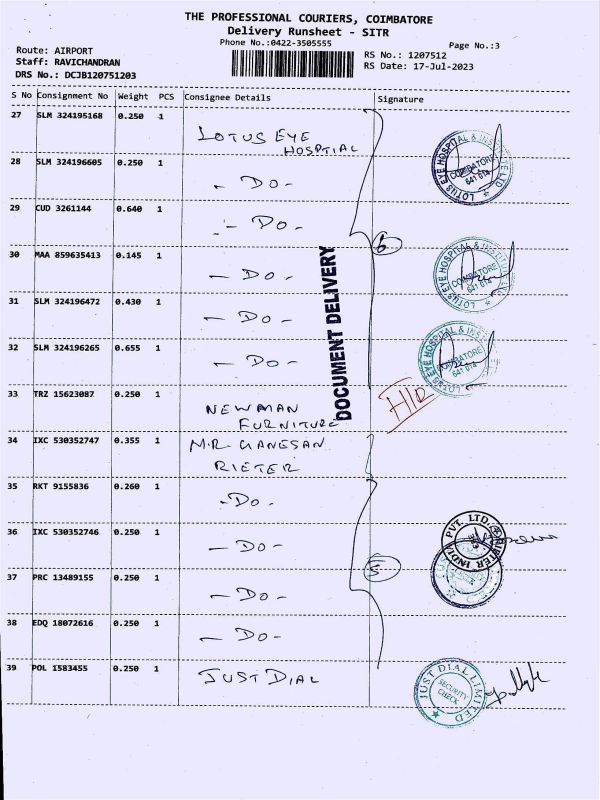 THE PROFESSIONAL COURIERS, COIMBATORE
Delivery Runsheet - SITR
Phone No.:0422-3505555
Page No.:3
Route: AIRPORT
Staff: RAVICHANDRAN
DRS No.: DCJB120751203
RS No.: 1207512
RS Date: 17-Jul-2023
S No Consignment No Weight PCS Consignee Details Signature
27 SLM 324195168 0.250 1 LOTUS EYE
HOSPTIAL
28 SLM 324196605 0.250 1 - DO -
29 CUD 3261144 0.640 1 - DO -
30 MAA 859635413 0.145 1 - DO -
31 SLM 324196472 0.430 1 - DO -
32 SLM 324196265 0.655 1 - DO -
33 TRZ 15623087 0.250 1 NEWMAN
FURNITURE
34 IXC 530352747 0.355 1 M.R. GANESAN
RIETER
35 RKT 9155836 0.260 1 - DO -
36 IXC 530352746 0.250 1 - DO -
37 PRC 13489155 0.250 1 - DO -
38 EDQ 18072616 0.250 1 - DO -
39 POL 1583455 0.250 1 JUST DIAL
6
5
DOCUMENT DELIVERY
LOTUS EYE HOSPITAL & INSTITUTE LTD
COIMBATORE
641 014
LOTUS EYE HOSPITAL &
COIMBATORE
641 014
LOTUS EYE HOSPITAL &
COIMBATORE
641 014
RIETER INDIA PVT. LTD.
JUST DIAL LIMITED
SECURITY
CHECK